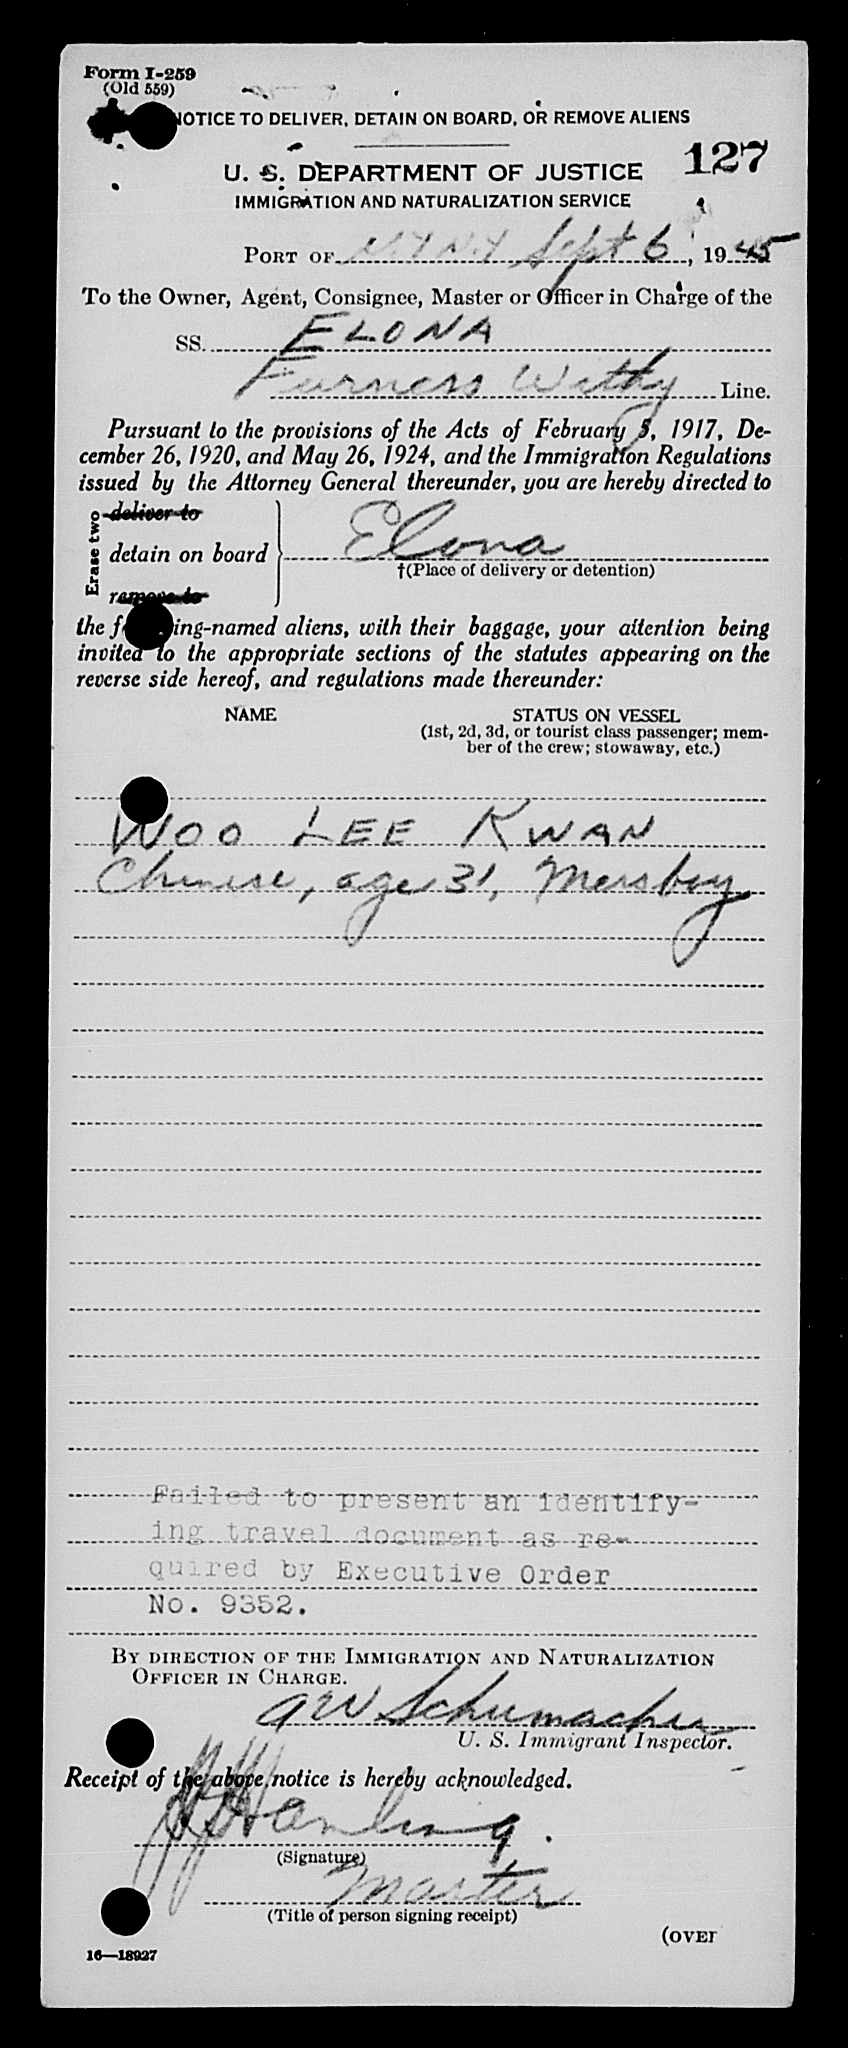 Form I-259
(Old 559)
NOTICE TO DELIVER, DETAIN ON BOARD, OR REMOVE ALIENS
127
U. S. DEPARTMENT OF JUSTICE
IMMIGRATION AND NATURALIZATION SERVICE
PORT OF N.Y N.Y Sept 6, 1945
To the Owner, Agent, Consignee, Master or Officer in Charge of the
SS. ELONA
Furness Withy Line.
Pursuant to the provisions of the Acts of February 5, 1917, De-
cember 26, 1920, and May 26, 1924, and the Immigration Regulations
issued by the Attorney General thereunder, you are hereby directed to
Erase two
deliver to
detain on board Elona
remove to
†(Place of delivery or detention)
the following-named aliens, with their baggage, your attention being
invited to the appropriate sections of the statutes appearing on the
reverse side hereof, and regulations made thereunder:
NAME STATUS ON VESSEL
(1st, 2d, 3d, or tourist class passenger; mem-
ber of the crew; stowaway, etc.)
WOO LEE KWAN
Chinese, age 31, Messboy
Failed to present an identify-
ing travel document as re-
quired by Executive Order
No. 9352.
BY DIRECTION OF THE IMMIGRATION AND NATURALIZATION
OFFICER IN CHARGE.
A W Schumacher
U. S. Immigrant Inspector.
Receipt of the above notice is hereby acknowledged.
(Signature)
Master
(Title of person signing receipt)
(OVER
16—18927